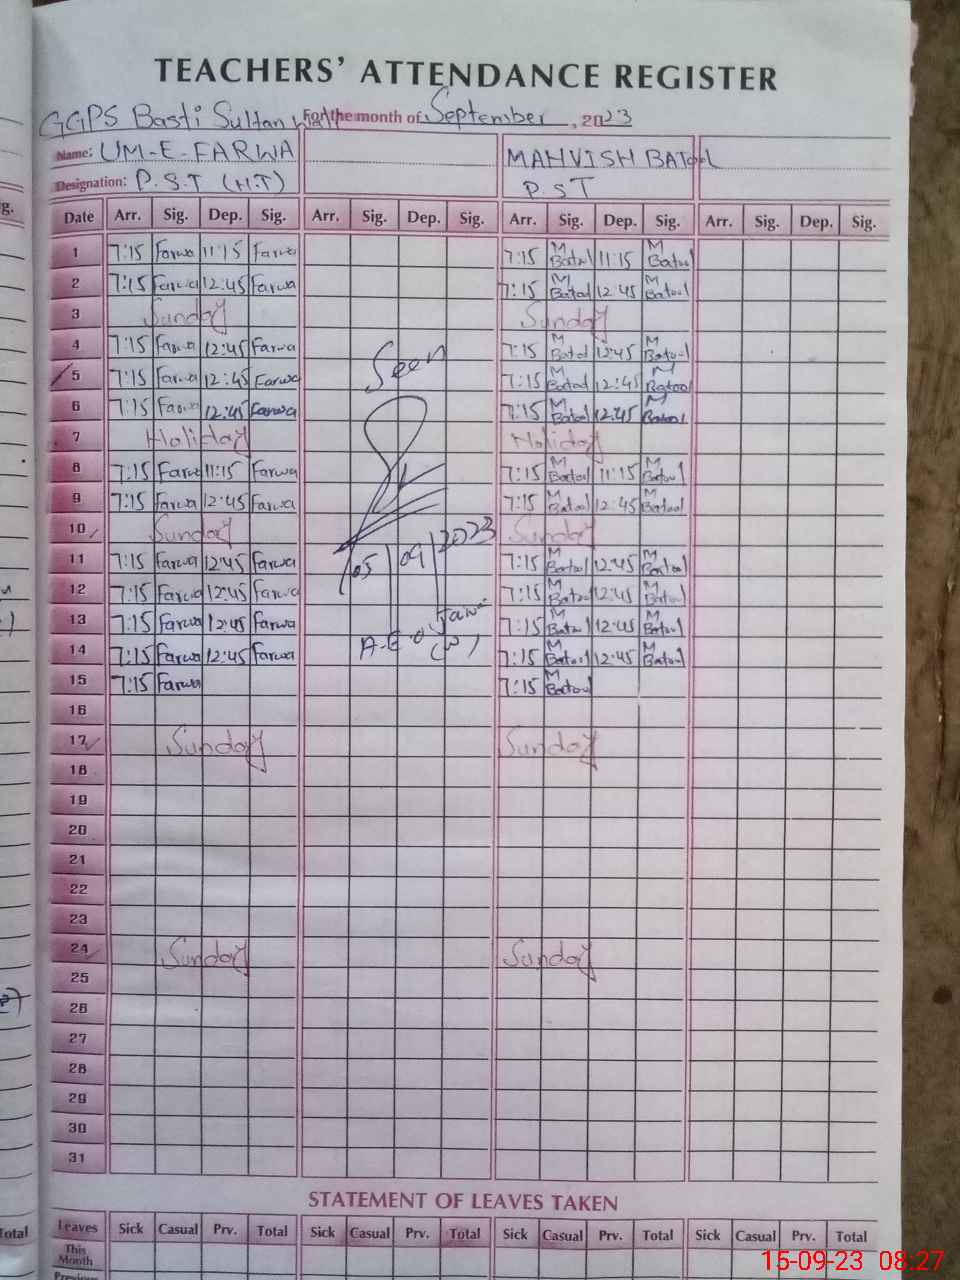 TEACHERS' ATTENDANCE REGISTER
GGPS Basti Sultan For the month of September, 2023
Name: UM-E-FARWA MAHVISH BATOOL
Designation: P.S.T (H.T) P.ST
Date Arr. Sig. Dep. Sig. Arr. Sig. Dep. Sig. Arr. Sig. Dep. Sig. Arr. Sig. Dep. Sig.
1 7:15 Farwa 11:15 Farwa 7:15 M Batool 11:15 M Batool
2 7:15 Farwa 12:45 Farwa 7:15 M Batool 12:45 M Batool
3 Sunday Sunday
4 7:15 Farwa 12:45 Farwa 7:15 M Batool 12:45 M Batool
Seen
5 7:15 Farwa 12:45 Farwa 7:15 M Batool 12:45 M Batool
6 7:15 Farwa 12:45 Farwa 7:15 M Batool 12:45 M Batool
7 Holiday Holiday
8 7:15 Farwa 11:15 Farwa 7:15 M Batool 11:15 M Batool
9 7:15 Farwa 12:45 Farwa 7:15 M Batool 12:45 M Batool
10 Sunday Sunday
05/09/2023
11 7:15 Farwa 12:45 Farwa 7:15 M Batool 12:45 M Batool
12 7:15 Farwa 12:45 Farwa 7:15 M Batool 12:45 M Batool
13 7:15 Farwa 12:45 Farwa 7:15 M Batool 12:45 M Batool
A.E.O (W)
14 7:15 Farwa 12:45 Farwa 7:15 M Batool 12:45 M Batool
15 7:15 Farwa 7:15 M Batool
16
17 Sunday Sunday
18
19
20
21
22
23
24 Sunday Sunday
25
26
27
28
29
30
31
STATEMENT OF LEAVES TAKEN
Total Leaves Sick Casual Prv. Total Sick Casual Prv. Total Sick Casual Prv. Total Sick Casual Prv. Total
This Month
Previous
15-09-23 08:27